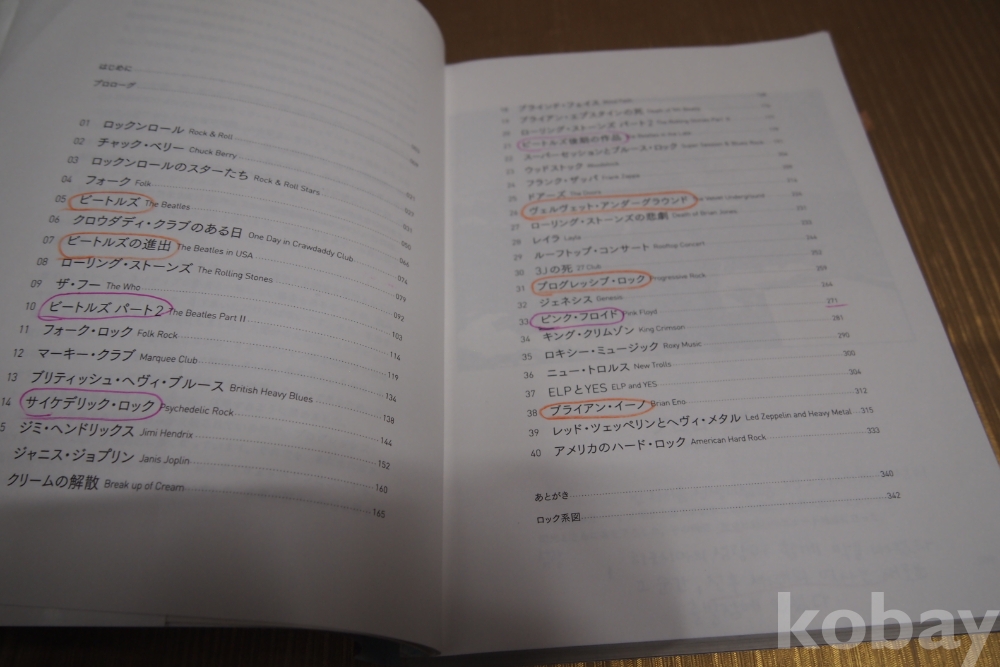 はじめに
プロローグ
01 ロックンロール Rock & Roll
02 チャック・ベリー Chuck Berry
03 ロックンロールのスターたち Rock & Roll Stars
04 フォーク Folk
05 ビートルズ The Beatles
06 クロウダディ・クラブのある日 One Day in Crawdaddy Club
07 ビートルズの進出 The Beatles in USA
08 ローリング・ストーンズ The Rolling Stones
09 ザ・フー The Who
10 ビートルズ パート2 The Beatles Part II
11 フォーク・ロック Folk Rock
12 マーキー・クラブ Marquee Club
13 ブリティッシュ・ヘヴィ・ブルース British Heavy Blues 134
14 サイケデリック・ロック Psychedelic Rock 138
5 ジミ・ヘンドリックス Jimi Hendrix 144
ジャニス・ジョプリン Janis Joplin 152
クリームの解散 Break up of Cream 160
165
ブラインド・フェイス
ブライアン・エプスタインの死
ローリング・ストーンズ パート2 The Rolling Stones Part II
ビートルズ後期の作品
スーパーセッションとブルース・ロック Super Session & Blues Rock
23 ウッドストック Woodstock
24 フランク・ザッパ Frank Zappa
25 ドアーズ The Doors
26 ヴェルヴェット・アンダーグラウンド Velvet Underground
27 ローリング・ストーンズの悲劇 Death of Brian Jones
28 レイラ Layla
29 ルーフトップ・コンサート Rooftop Concert
30 3Jの死 27 Club
31 プログレッシブ・ロック Progressive Rock
32 ジェネシス Genesis 264
33 ピンク・フロイド Pink Floyd 271
34 キング・クリムゾン King Crimson 281
35 ロキシー・ミュージック Roxy Music 290
36 ニュー・トロルス New Trolls 300
37 ELPとYES ELP and YES 304
38 ブライアン・イーノ Brian Eno 312
39 レッド・ツェッペリンとヘヴィ・メタル Led Zeppelin and Heavy Metal 315
40 アメリカのハード・ロック American Hard Rock 333
あとがき 340
ロック系図 342
kobay